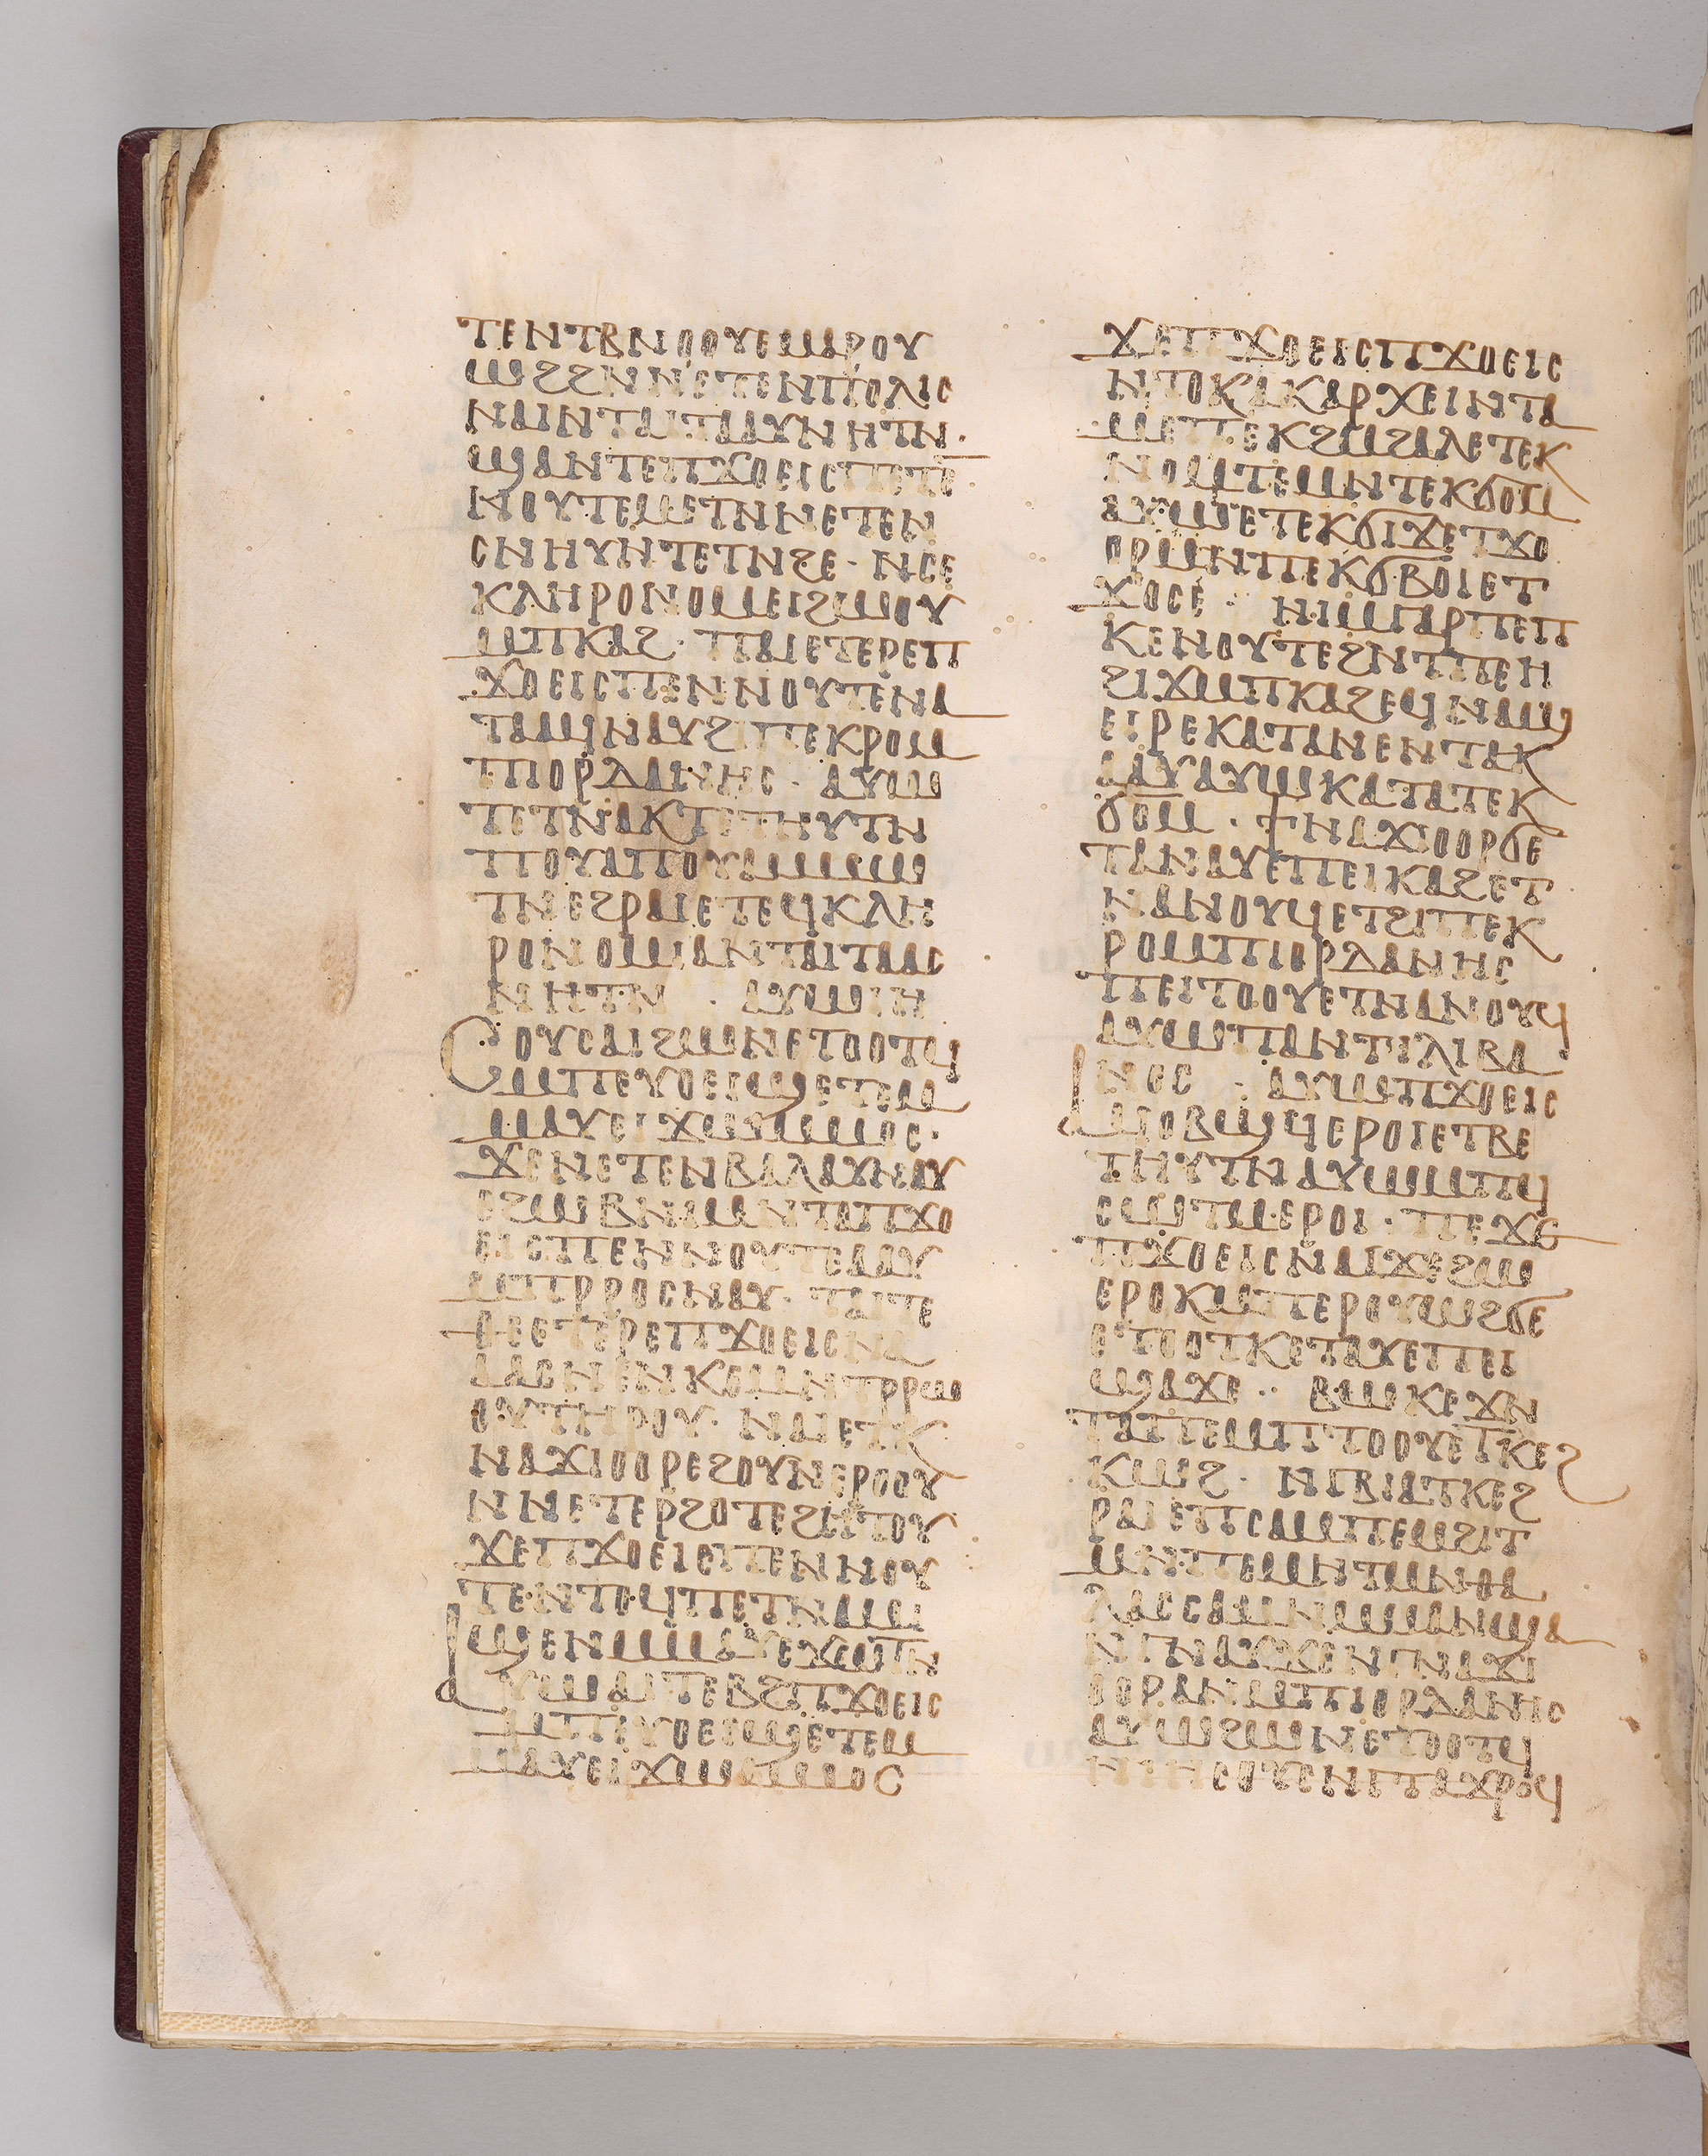 ⲧⲉⲛⲧⲃⲛⲟⲟⲩⲉⲙⲁⲣⲟⲩ
ⲱϩϩⲛⲛⲉⲧⲉⲛⲡⲟⲗⲓⲥ
ⲛⲁⲓⲛⲧⲁⲓⲧⲁⲁⲩⲛⲏⲧⲛ·
ϣⲁⲛⲧⲉⲡϫⲟⲉⲓⲥⲡⲉⲧⲉ̅
ⲛⲟⲩⲧⲉⲙⲉⲧⲛⲛⲉⲧⲉⲛ
ⲥⲛⲏⲩⲛⲧⲉⲧⲛϩⲉ·ⲛⲥⲉ
ⲕⲗⲏⲣⲟⲛⲟⲙⲉⲓϩⲱⲟⲩ
ⲙⲡⲕⲁϩ·ⲡⲁⲓⲉⲧⲉⲣⲉⲡ
ϫⲟⲉⲓⲥⲡⲉⲛⲛⲟⲩⲧⲉⲛⲁ
ⲧⲁⲁϥⲛⲁⲩϩⲓⲡⲉⲕⲣⲟⲙ
ⲡⲓⲟⲣⲇⲁⲛⲏⲥ·ⲁⲩⲱ
ⲧⲉⲧⲛⲁⲕⲧⲉⲧⲏⲩⲧⲛ
ⲡⲟⲩⲁⲡⲟⲩⲁⲙⲙⲱ
ⲧⲛⲉϩⲣⲁⲓⲉⲧⲉϥⲕⲗⲏ
ⲣⲟⲛⲟⲙⲓⲁⲛⲧⲁⲓⲧⲁⲁⲥ
ⲛⲏⲧⲛ·ⲁⲩⲱⲓⲏ
ⲥⲟⲩⲥⲁⲓϩⲱⲛⲉⲧⲟⲟⲧϥ
ⲙⲡⲉⲩⲟⲉⲓϣⲉⲧⲙ
ⲙⲁⲩⲉⲓϫⲱⲙⲙⲟⲥ·
ϫⲉⲛⲉⲧⲉⲛⲃⲁⲗⲁⲩⲛⲁⲩ
ⲉϩⲱⲃⲛⲓⲙⲛⲧⲁⲡϫⲟ
ⲉⲓⲥⲡⲉⲛⲛⲟⲩⲧⲉⲁⲁⲩ
ⲙⲡⲣⲣⲟⲥⲛⲁⲩ·ⲧⲁⲓⲧⲉ
ⲑⲉⲉⲧⲉⲣⲉⲡϫⲟⲉⲓⲥⲛⲁ
ⲁⲁⲥⲛⲛⲕⲉⲙⲛⲧⲣⲣⲱ
ⲟⲩⲧⲏⲣⲟⲩ·ⲛⲁⲓⲉⲧⲕ
ⲛⲁϫⲓⲟⲟⲣⲉϩⲟⲩⲛⲉⲣⲟⲟⲩ
ⲛⲛⲉⲧⲉⲣϩⲟⲧⲉϩⲏⲧⲟⲩ
ϫⲉⲡϫⲟⲉⲓⲥⲡⲉⲛⲛⲟⲩ
ⲧⲉⲛⲧⲟϥⲡⲉⲧⲛⲁⲙⲓ
ϣⲉⲛⲙⲙⲁⲩⲉϫⲱⲧⲛ
ⲁⲩⲱⲁⲓⲧⲉⲃϩⲡϫⲟⲉⲓⲥ
ⲙⲡⲉⲩⲟⲉⲓϣⲉⲧⲙ
ⲙⲁⲩⲉⲓϫⲱⲙⲙⲟⲥ
ϫⲉⲡϫⲟⲉⲓⲥⲡϫⲟⲉⲓⲥ
ⲛⲧⲟⲕⲁⲕⲁⲣⲭⲉⲓⲛⲧⲁ
ⲙⲉⲡⲉⲕϩⲙϩⲁⲗⲉⲧⲉⲕ
ⲛⲟⲙⲧⲉⲙⲛⲧⲉⲕϭⲟⲙ
ⲁⲩⲱⲉⲧⲉⲕϭⲓϫⲉⲧϫⲟ
ⲟⲣⲙⲛⲡⲉⲕϭⲃⲟⲓⲉⲧ
ϫⲟⲥⲉ· ⲛⲓⲙⲅⲁⲣⲡⲉⲡ
ⲕⲉⲛⲟⲩⲧⲉϩⲛⲧⲡⲉⲏ
ϩⲓϫⲙⲡⲕⲁϩⲉϥⲛⲁϣ
ⲉⲓⲣⲉⲕⲁⲧⲁⲛⲉⲛⲧⲁⲕ
ⲁⲁⲩⲁⲩⲱⲕⲁⲧⲁⲧⲉⲕ
ϭⲟⲙ·ϯⲛⲁϫⲓⲟⲟⲣϭⲉ
ⲧⲁⲛⲁⲩⲉⲡⲉⲓⲕⲁϩⲉⲧ
ⲛⲁⲛⲟⲩϥⲉⲧϩⲓⲡⲉⲕ
ⲣⲟⲙⲡⲓⲟⲣⲇⲁⲛⲏⲥ
ⲡⲉⲓⲧⲟⲟⲩⲉⲧⲛⲁⲛⲟⲩϥ
ⲁⲩⲱⲡⲁⲛⲧⲓⲗⲓⲃⲁ
ⲛⲟⲥ · ⲁⲩⲱⲡϫⲟⲉⲓⲥ
ⲁϥⲟⲃϣϥⲉⲣⲟⲓⲉⲧⲃⲉ
ⲧⲏⲩⲧⲛⲁⲩⲱⲙⲡϥ
ⲥⲱⲧⲙⲉⲣⲟⲓ·ⲡⲉϫⲉ
ⲡϫⲟⲉⲓⲥⲛⲁⲓϫⲉϩⲱ
ⲉⲣⲟⲕⲙⲡⲉⲣⲟⲩⲱϩϭⲉ
ⲉⲧⲟⲟⲧⲕⲉⲧⲁⲩⲉⲡⲉⲓ
ϣⲁϫⲉ·· ⲃⲱⲕⲉϫⲛ
ⲧⲁⲡⲉⲙⲡⲧⲟⲟⲩⲉⲧⲕⲉϩ
ⲕⲱϩ·ⲛⲅϥⲓⲁⲧⲕⲉϩ
ⲣⲁⲓⲉⲡⲥⲁⲙⲡⲉⲙϩⲓⲧ
ⲙⲛⲡⲉⲙⲛⲧⲙⲛⲑⲁ
ⲗⲁⲥⲥⲁⲙⲛⲙⲙⲁⲛϣⲁ
ⲛⲅⲛⲁⲩϫⲉⲛⲅⲛⲁϫⲓ
ⲟⲟⲣⲁⲛⲙⲡⲓⲟⲣⲇⲁⲛⲏⲥ
ⲁⲩⲱϩⲱⲛⲉⲧⲟⲟⲧϥ
ⲛⲓⲏⲥⲟⲩⲉⲛⲅⲧⲁϫⲣⲟϥ